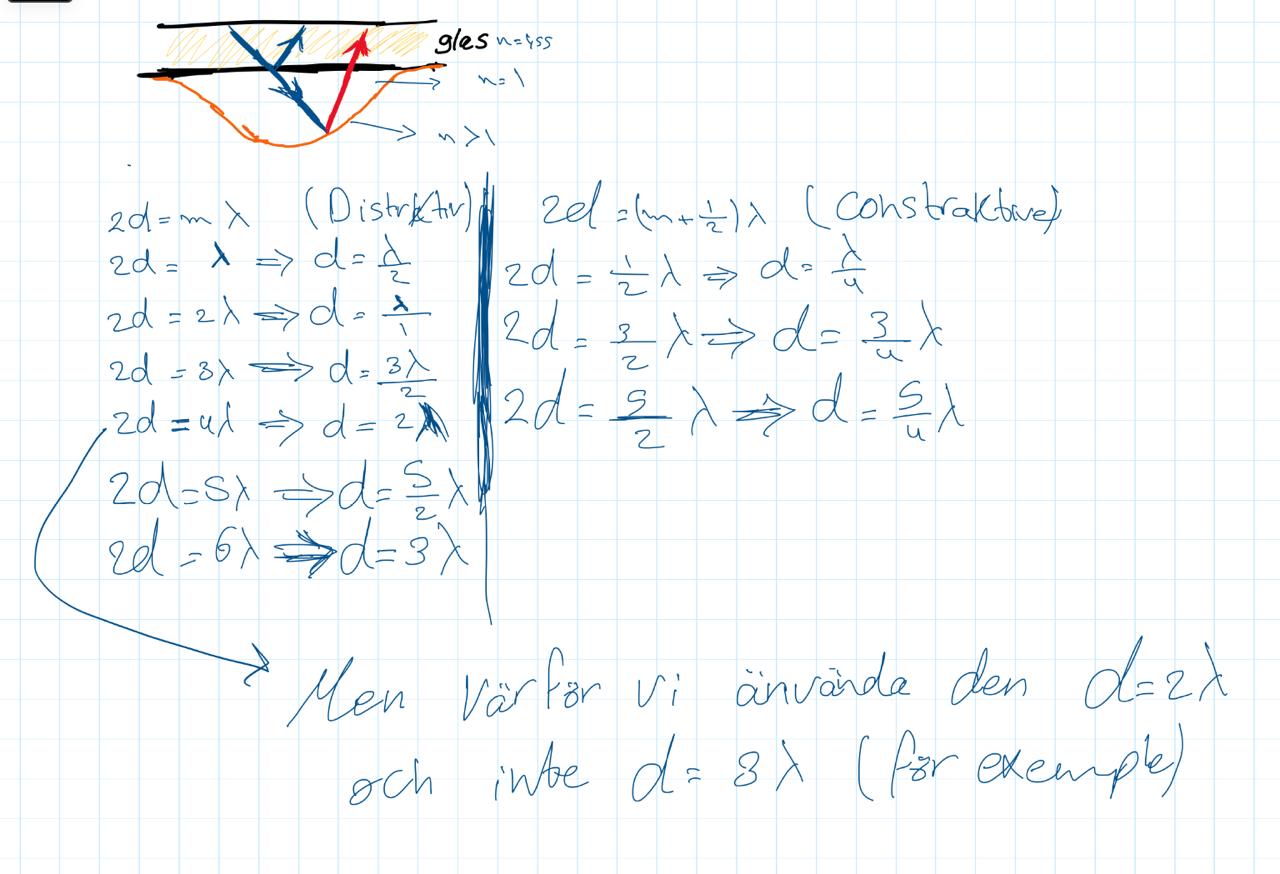 gles n=1,55
n=1
n>1
2d=mλ (Distrktiv)
2d= λ ⇒ d= λ/2
2d = 2λ ⇒ d= λ/1
2d = 3λ ⇒ d= 3λ/2
2d = 4λ ⇒ d= 2λ
2d=5λ ⇒ d= 5/2 λ
2d = 6λ ⇒ d= 3λ
2d =(m+1/2)λ (Constraktive)
2d = 1/2 λ ⇒ d= λ/4
2d = 3/2 λ ⇒ d= 3/4 λ
2d = 5/2 λ ⇒ d = 5/4 λ
Men värför vi änvända den d=2λ
och inte d= 3λ (för exemple)